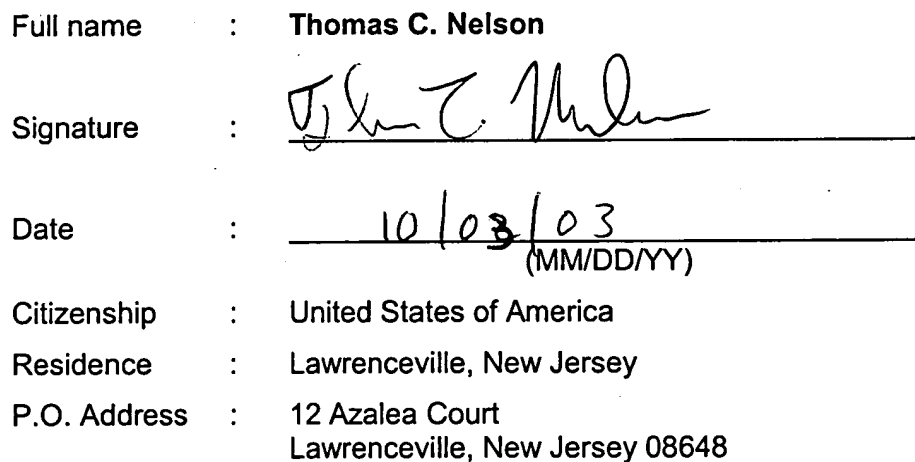 Full name : Thomas C. Nelson
Signature :
Date : 10/03/03
(MM/DD/YY)
Citizenship : United States of America
Residence : Lawrenceville, New Jersey
P.O. Address : 12 Azalea Court
Lawrenceville, New Jersey 08648